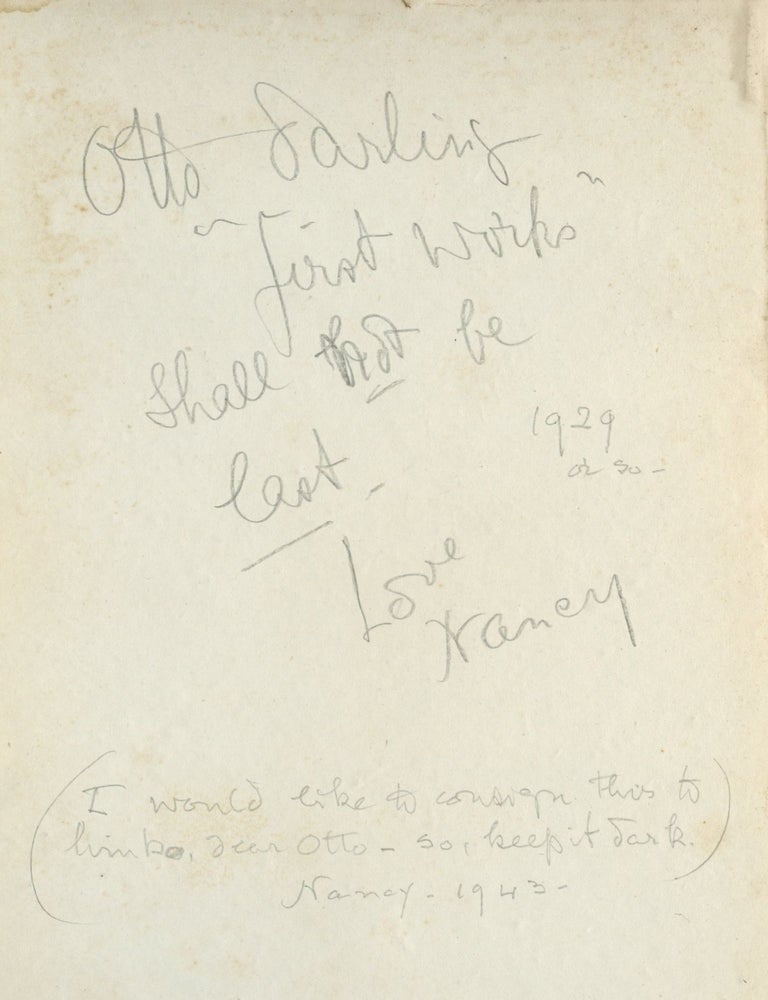 Otto Darling
"First Works"
Shall not be
last.
1929
or so -
Love
Nancy
(I would like to consign this to
limbo, dear Otto - so, keep it dark.)
Nancy - 1943 -